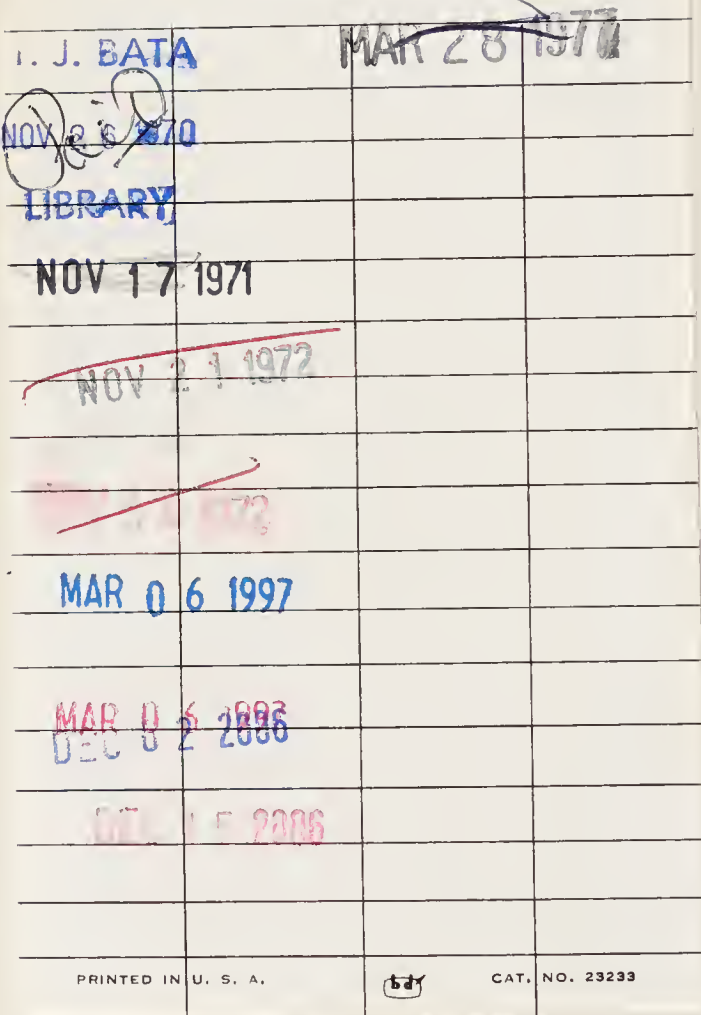 T. J. BATA
NOV 26 1970
LIBRARY
NOV 17 1971
NOV 21 1972
1972
MAR 06 1997
MAR 06 1997
DEC 02 2006
2006
MAR 28 1977
PRINTED IN U. S. A.
bd
CAT. NO. 23233